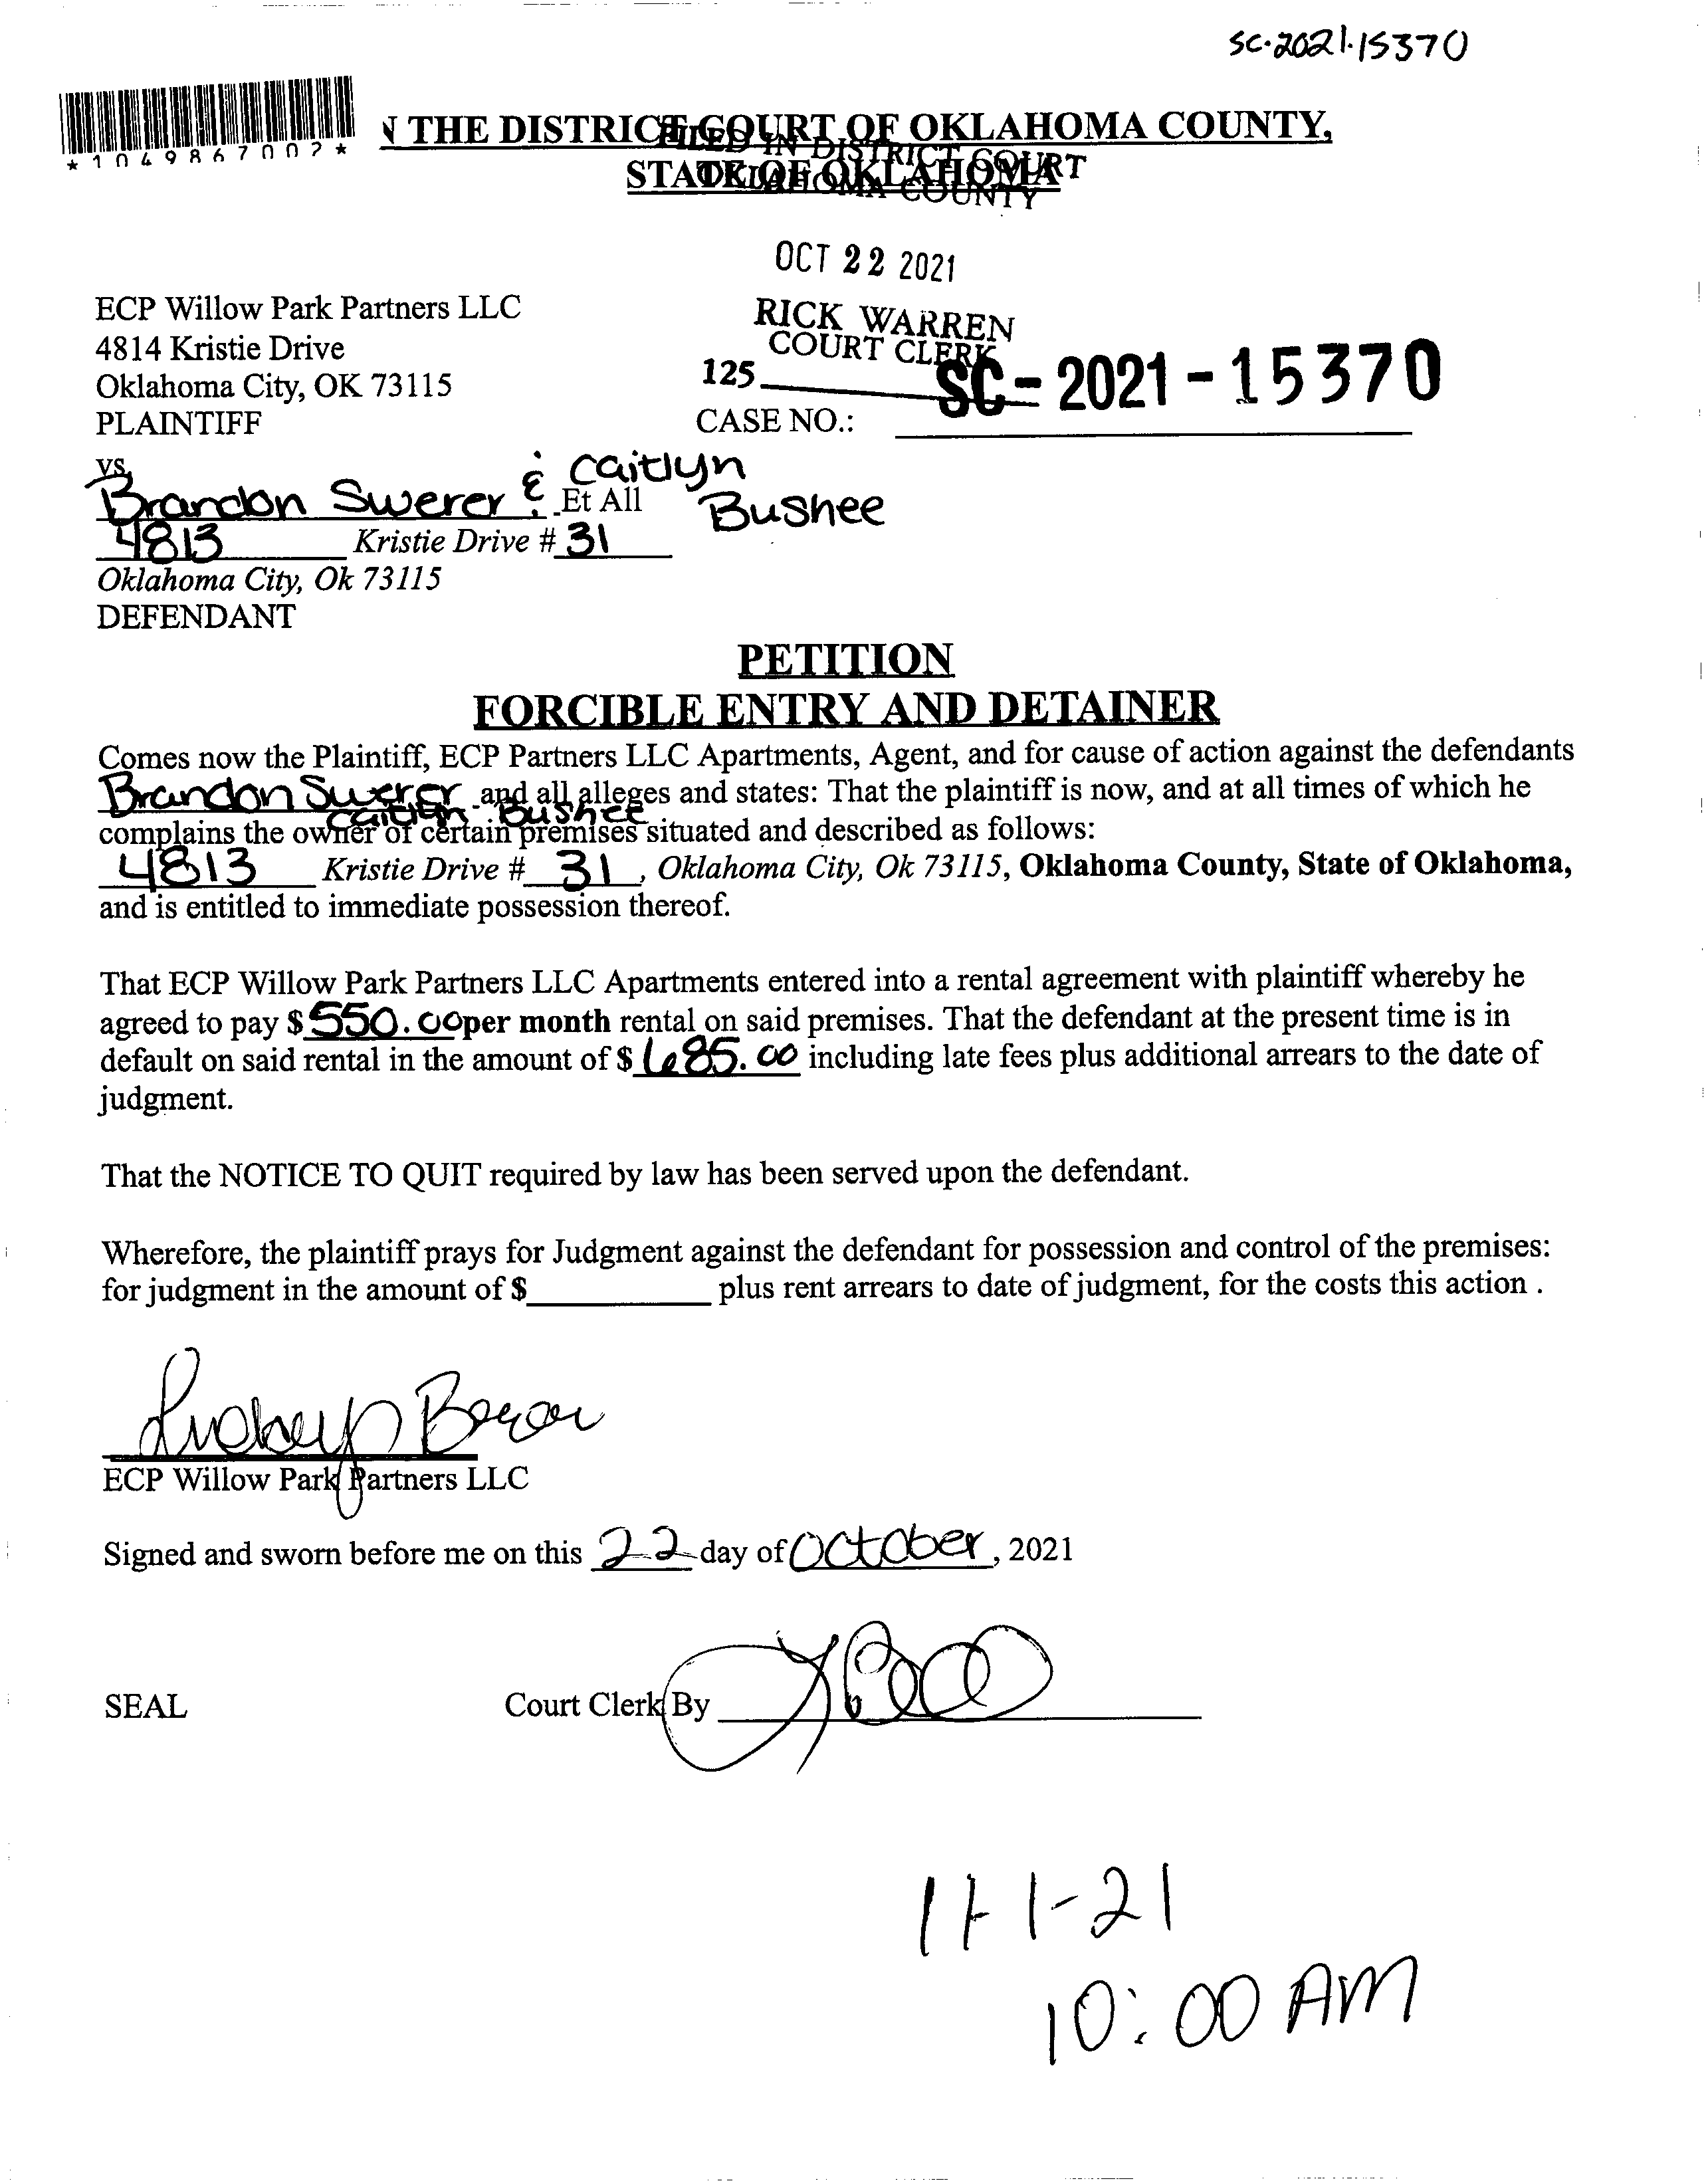 SC-2021-15370
*1049867002*
N THE DISTRICT COURT OF OKLAHOMA COUNTY,
STATE OF OKLAHOMA
FILED IN DISTRICT COURT
OKLAHOMA COUNTY
OCT 22 2021
RICK WARREN
COURT CLERK
125
ECP Willow Park Partners LLC
4814 Kristie Drive
Oklahoma City, OK 73115
PLAINTIFF
SC-2021-15370
CASE NO.:
vs.
Brandon Swerer & Caitlyn Bushee
Et All
4813 Kristie Drive # 31
Oklahoma City, Ok 73115
DEFENDANT
PETITION
FORCIBLE ENTRY AND DETAINER
Comes now the Plaintiff, ECP Partners LLC Apartments, Agent, and for cause of action against the defendants
Brandon Swerer and all alleges and states: That the plaintiff is now, and at all times of which he
Caitlyn Bushee
complains the owner of certain premises situated and described as follows:
4813 Kristie Drive # 31, Oklahoma City, Ok 73115, Oklahoma County, State of Oklahoma,
and is entitled to immediate possession thereof.
That ECP Willow Park Partners LLC Apartments entered into a rental agreement with plaintiff whereby he
agreed to pay $ 550.00 per month rental on said premises. That the defendant at the present time is in
default on said rental in the amount of $ 685.00 including late fees plus additional arrears to the date of
judgment.
That the NOTICE TO QUIT required by law has been served upon the defendant.
Wherefore, the plaintiff prays for Judgment against the defendant for possession and control of the premises:
for judgment in the amount of $ plus rent arrears to date of judgment, for the costs this action .
ECP Willow Park Partners LLC
Signed and sworn before me on this 22 day of October, 2021
SEAL Court Clerk By
11-1-21
10:00 AM